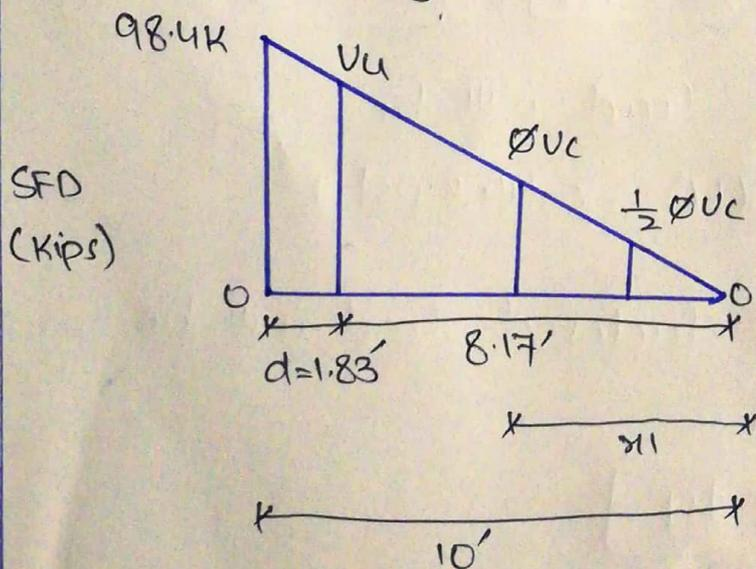 98.4K
Vu
ØVc
½ØVc
SFD
(Kips)
0
0
d=1.83′
8.17′
x1
10′